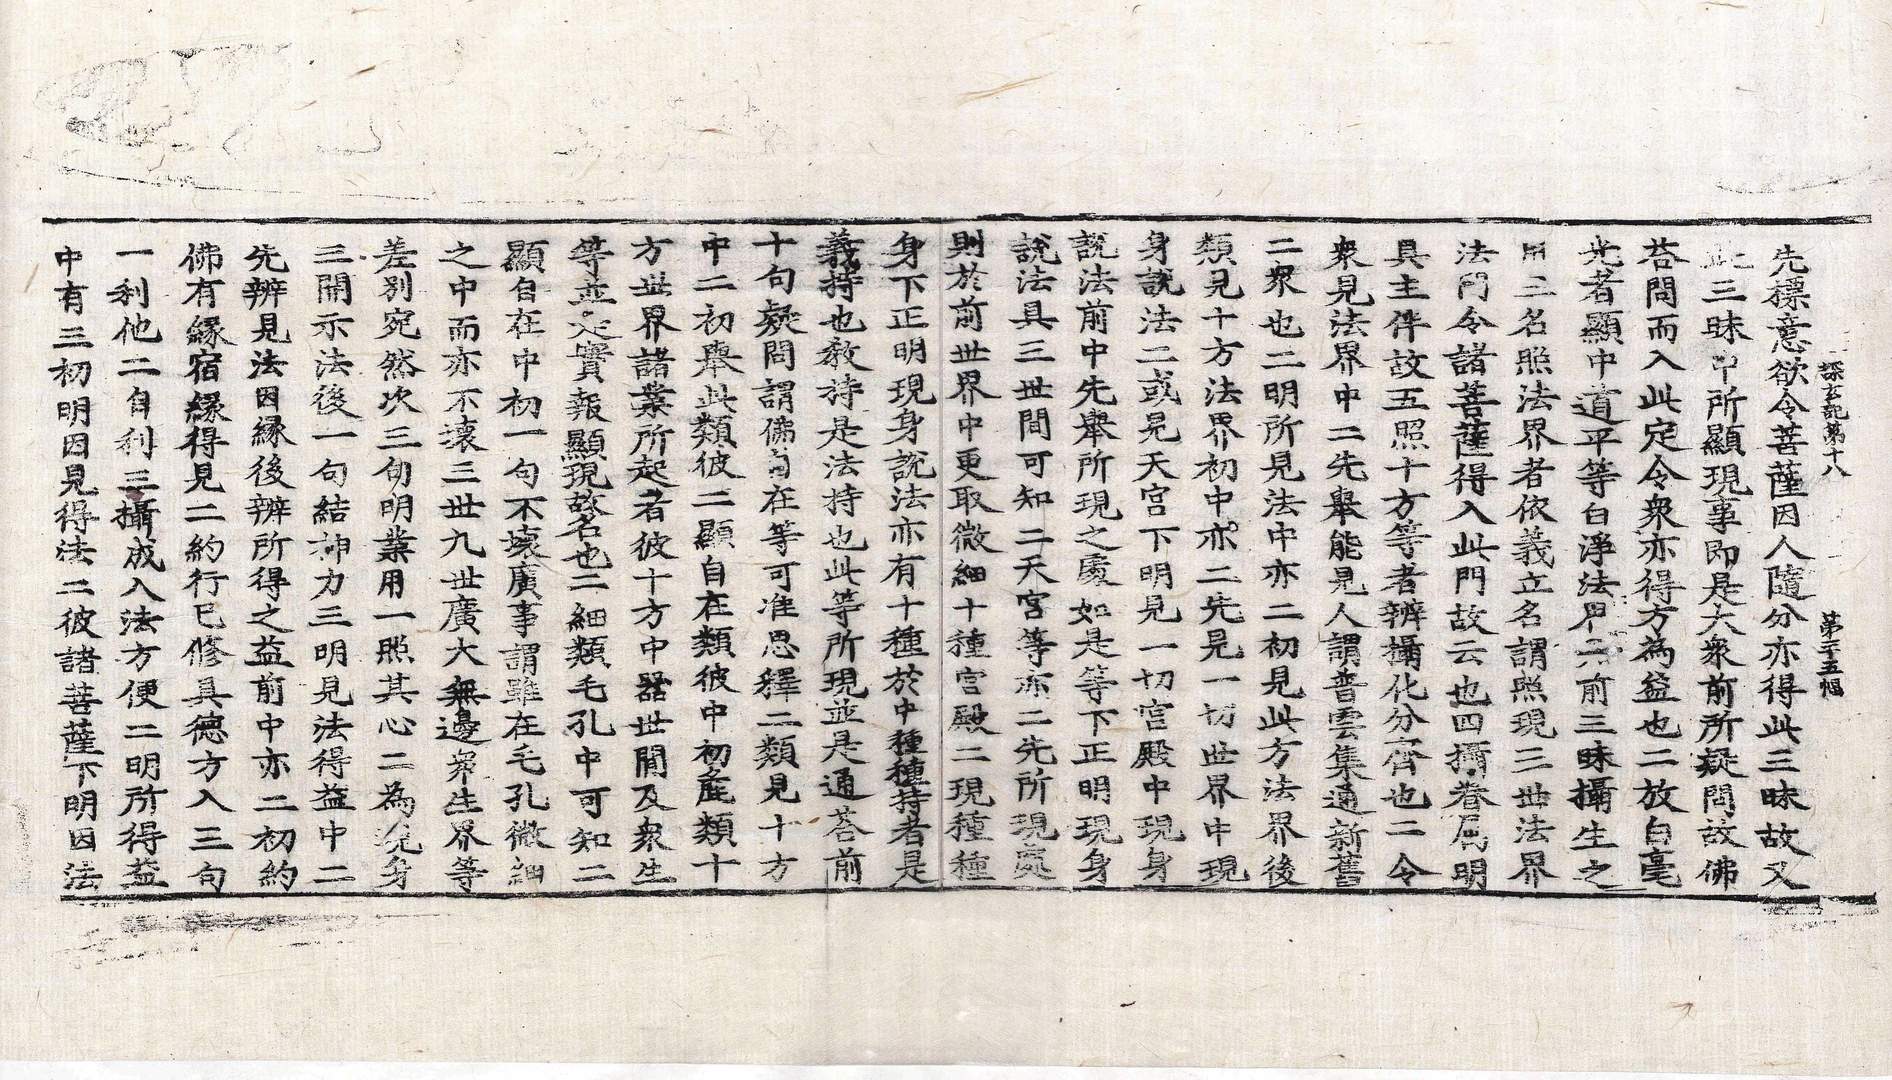 探玄記第十八　第二十五幅
先摽意欲令菩薩因人隨分亦得此三昧故又
此三昧中所顯現事即是大衆前所疑問故佛
荅問而入此定令衆亦得方為益也二放白毫
光者顯中道平等白淨法界六前三昧攝生之
用三名照法界者依義立名謂照現三世法界
法門令諸菩薩得入此門故云也四攝眷屬明
具主伴故五照十方等者辨攝化分齊也二令
衆見法界中二先舉能見人謂普雲集通新舊
二衆也二明所見法中亦二初見此方法界後
類見十方法界初中亦二先見一切世界中現
身說法二或見天宮下明見一切宮殿中現身
說法前中先舉所現之處如是等下正明現身
說法具三世間可知二天宮等亦二先所現處
則於前世界中更取微細十種宮殿二現種種
身下正明現身說法亦有十種於中種種持者是
義持也教持是法持也此等所現並是通荅前
十句疑問謂佛自在等可准思釋二類見十方
中二初舉此類彼二顯自在類彼中初產類十
方世界諸業所起者彼十方中器世間及衆生
等並是實報顯現故名也二細類毛孔中可知二
顯自在中初一句不壞廣事謂雖在毛孔微細
之中而亦不壞三世九世廣大無邊衆生界等
差別宛然次三句明業用一照其心二為現身
三開示法後一句結神力三明見法得益中二
先辨見法因緣後辨所得之益前中亦二初約
佛有緣宿緣得見二約行已修具德方入三句
一利他二自利三攝成入法方便二明所得益
中有三初明因見得法二彼諸菩薩下明因法